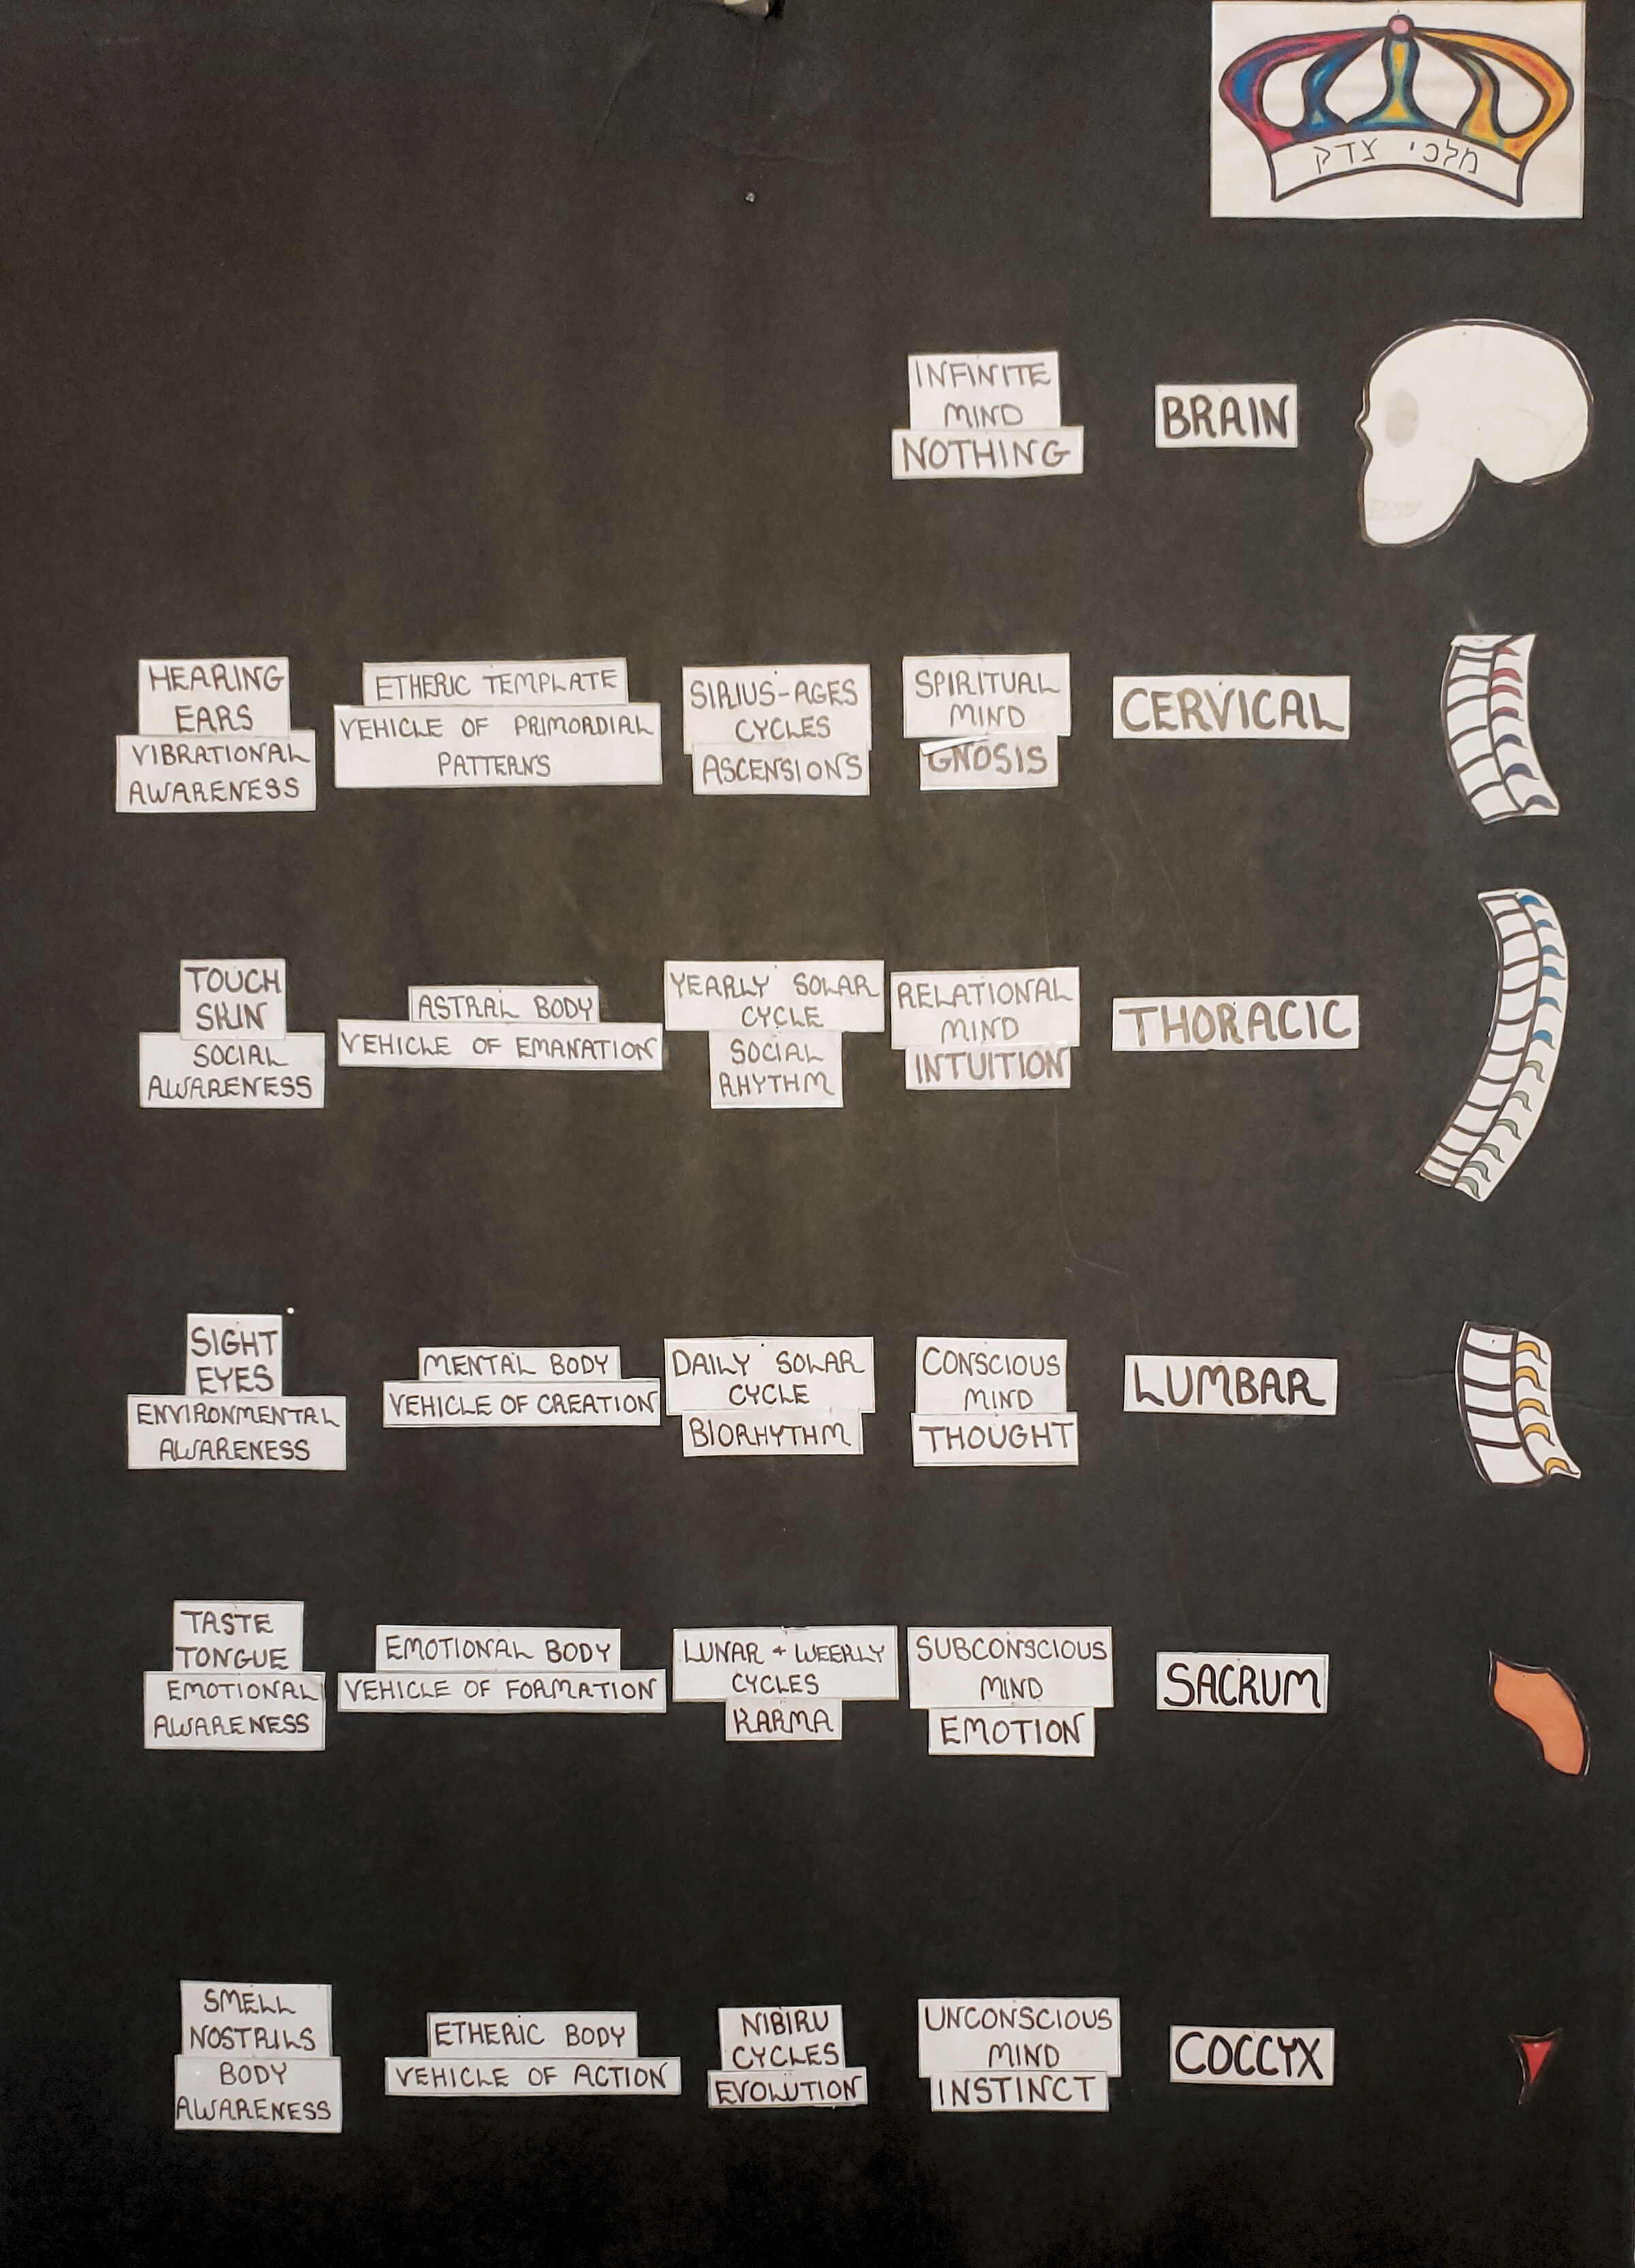 מלכי צדק
INFINITE
MIND
NOTHING
BRAIN
HEARING
EARS
VIBRATIONAL
AWARENESS
ETHERIC TEMPLATE
VEHICLE OF PRIMORDIAL
PATTERNS
SIRIUS-AGES
CYCLES
ASCENSIONS
SPIRITUAL
MIND
GNOSIS
CERVICAL
TOUCH
SKIN
SOCIAL
AWARENESS
ASTRAL BODY
VEHICLE OF EMANATION
YEARLY SOLAR
CYCLE
SOCIAL
RHYTHM
RELATIONAL
MIND
INTUITION
THORACIC
SIGHT
EYES
ENVIRONMENTAL
AWARENESS
MENTAL BODY
VEHICLE OF CREATION
DAILY SOLAR
CYCLE
BIORHYTHM
CONSCIOUS
MIND
THOUGHT
LUMBAR
TASTE
TONGUE
EMOTIONAL
AWARENESS
EMOTIONAL BODY
VEHICLE OF FORMATION
LUNAR + WEEKLY
CYCLES
KARMA
SUBCONSCIOUS
MIND
EMOTION
SACRUM
SMELL
NOSTRILS
BODY
AWARENESS
ETHERIC BODY
VEHICLE OF ACTION
NIBIRU
CYCLES
EVOLUTION
UNCONSCIOUS
MIND
INSTINCT
COCCYX